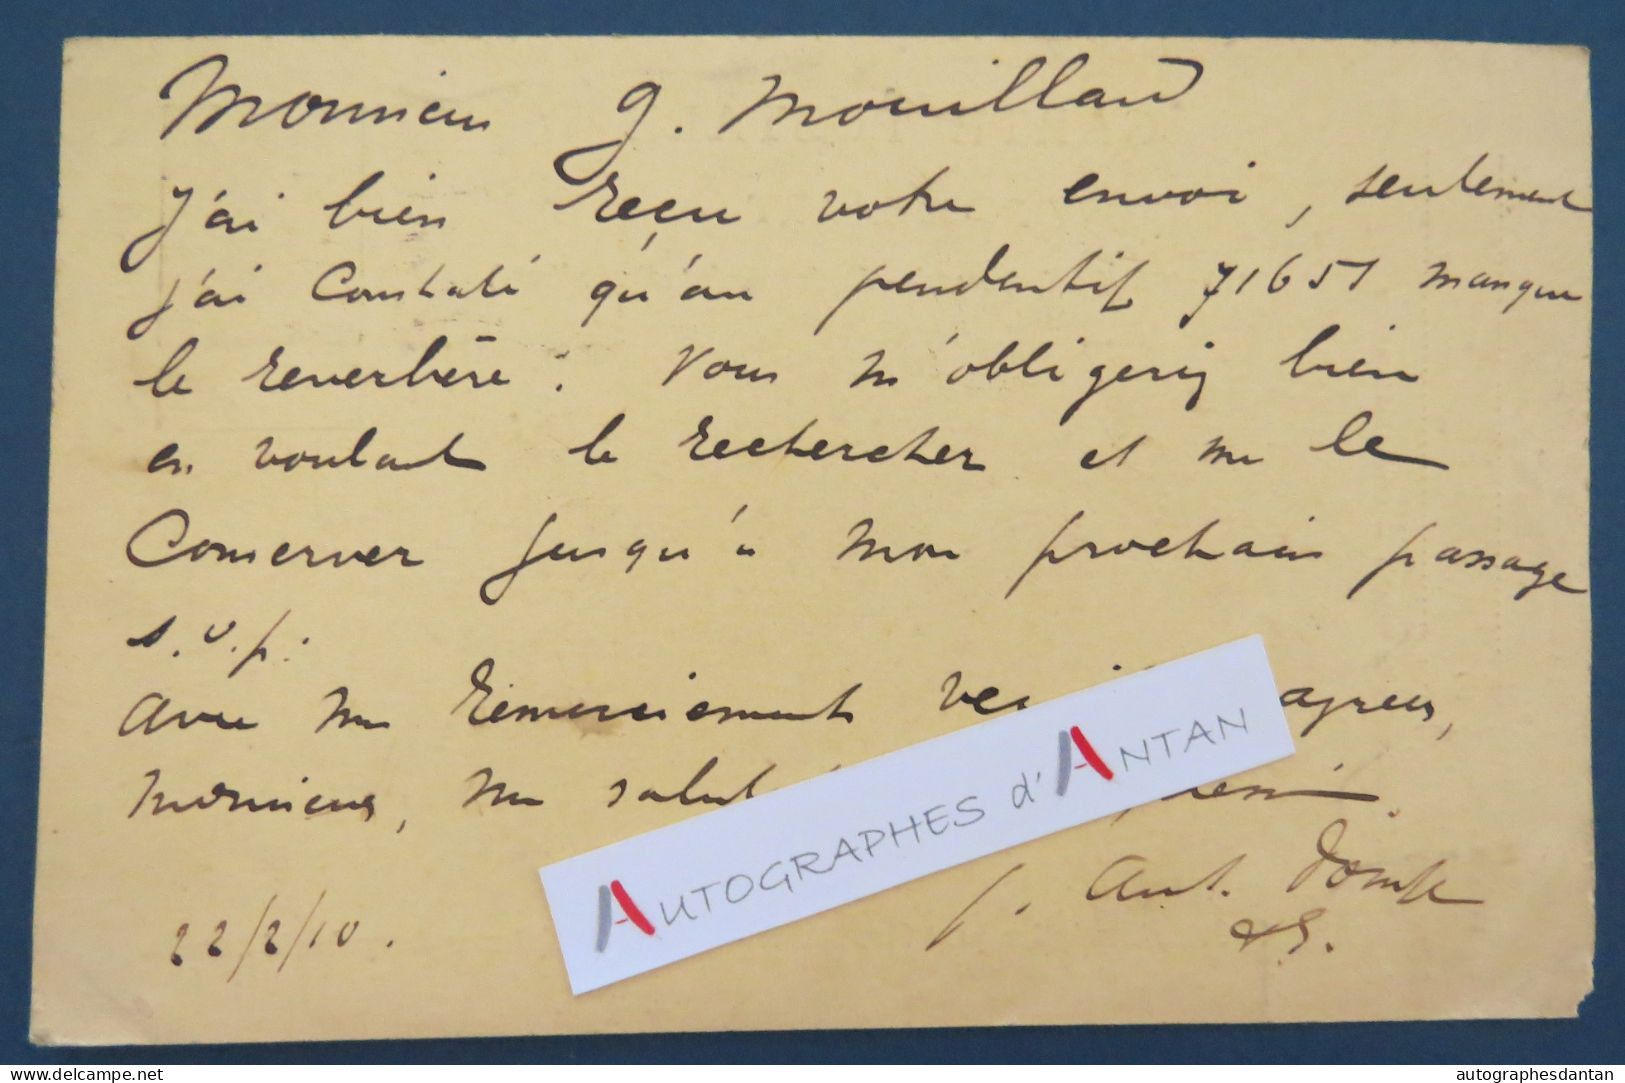 Monsieur G. Mouillard
J'ai bien reçu votre envoi, seulement
j'ai constaté qu'au pendentif 71651 manque
le reverbère : Vous m'obligeriez bien
en voulant le rechercher et me le
Conserver jusqu'à mon prochain passage
s.v.p.
Avec mes remerciements agréer,
Monsieur, mes
AUTOGRAPHES d'ANTAN
22/2/10.
p. Ant.
autographesdantan
delcampe.net